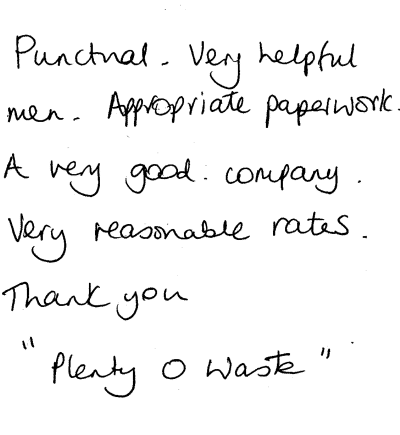 Punctual. Very helpful
men. Appropriate paperwork.
A very good. company.
Very reasonable rates.
Thank you
"Plenty O Waste"